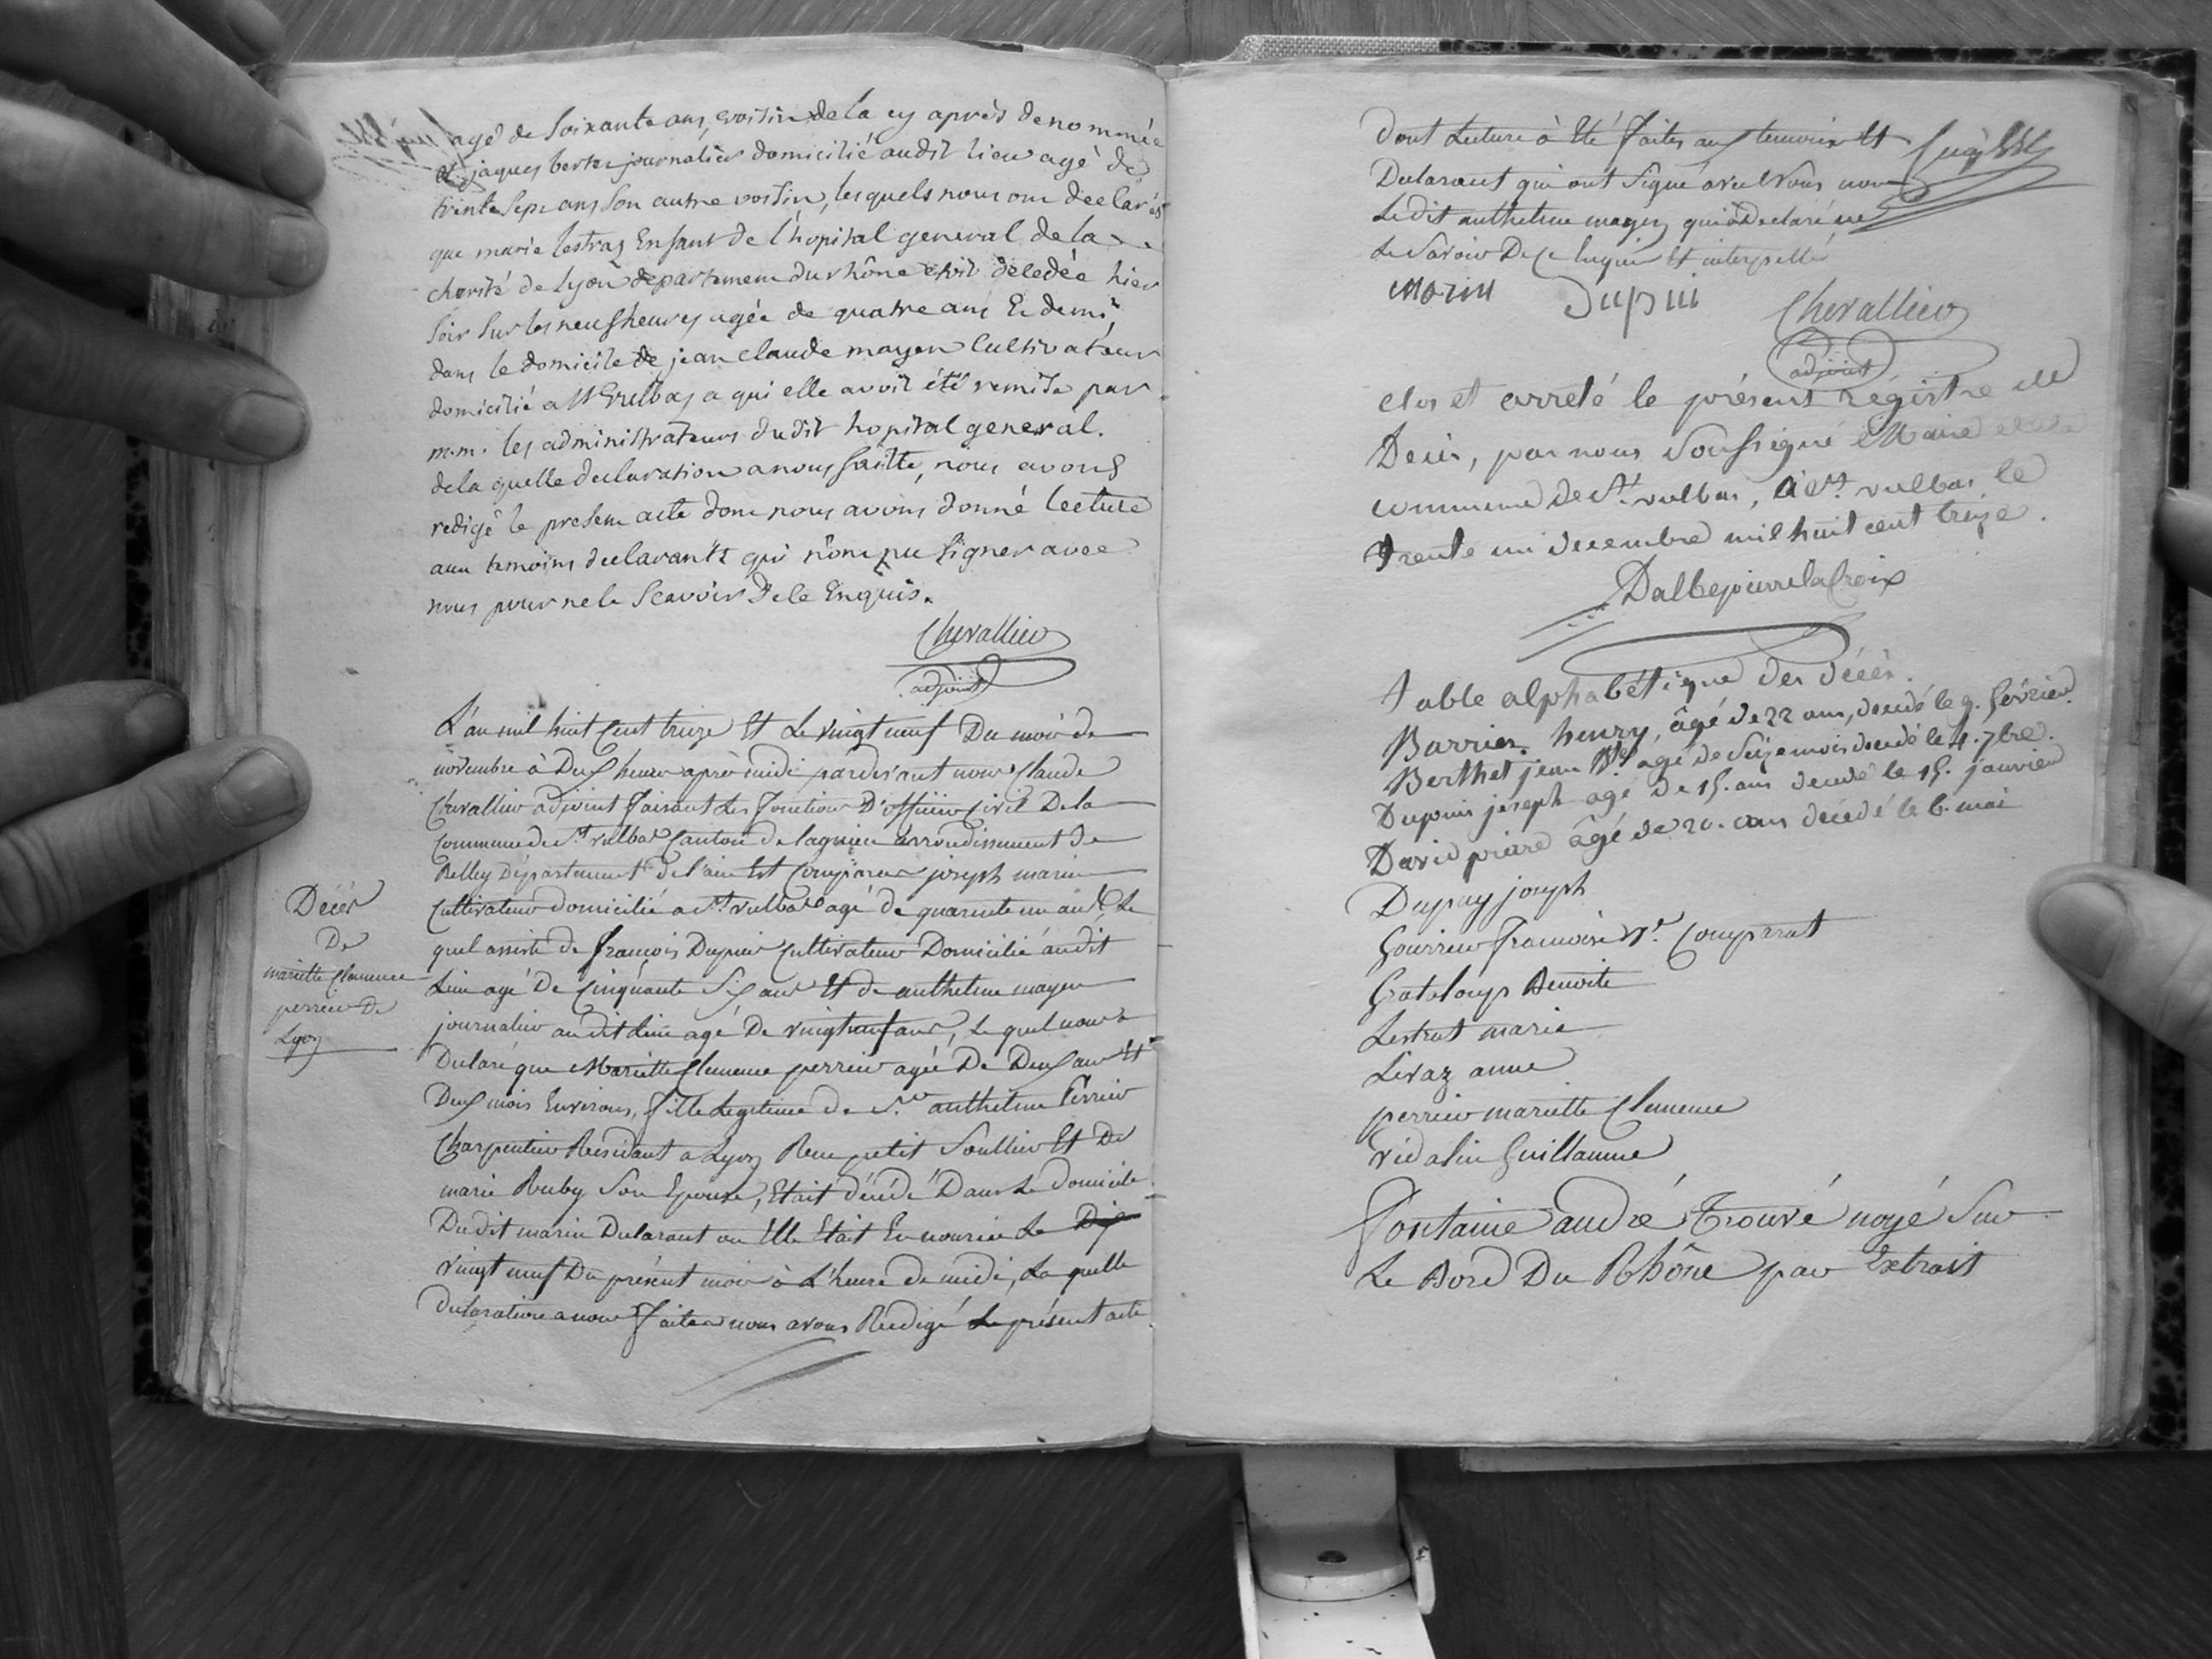 agé de soixante ans, voisin de la cy après denommée
et jaques berthet journalier domicilié audit lieu agé de
trente sept ans son autre voisin, lesquels nous ont declarés
que marie lestraz Enfant de l'hopital general de la
charité de Lyon departement du rhône etoit decedée hier
soir sur les neuf heures agée de quatre ans Et demi
dans le domicile de jean claude mayen Cultivateur
domicilié a St Vulbas a qui elle avoit été remise par
m.m. les administrateurs dudit hopital general.
de la quelle declaration a nous faitte, nous avons
redigé le present acte dont nous avons donné lecture
aux temoins declarants qui n'ont pu signer avec
nous pour ne le scavoir De ce Enquis.
Chevallier
adjoint
L'an mil huit Cent treize Et Le vingt neuf Du mois de
novembre à Deux heures après midi pardevant nous Claude
Chevallier adjoint faisant Les fonctions D'officier Civil De la
Commune de St vulbas Canton de lagnieu arrondissement de
Belley Département de l'ain Est Comparu joseph marin
Cultivateur domicilié a St vulbas agé de quarente un ans, Le
quel assisté de françois Dupuis Cultivateur Domicilié audit
Lieu agé De Cinquante Six ans Et de anthelme mayen
journalier audit Lieu agé De vingt neuf ans, Le quel nous a
Declaré que Mariette Clemence perrier agée De Deux ans Et
Deux mois Environs, fille Legitime de Sr. anthelme Perrier
Charpentier Residant a Lyon Rue petit Soullier Et De
marie Ruby Son Epouse, Etait décédé Dans Le domicile
Dudit marin Declarant ou Elle Etait En nourice Le Dix
vingt neuf Du présent mois à L'heure de midi, La quelle
declaration a nous faite nous avons Redigé Le présent acte
Décès
De
mariette Clemence
perrier De
Lyon
Dont Lecture à Eté faites aux temoins Et
Declarant qui ont Signé avec Nous non
Ledit anthelme mayen qui a Declaré ne
Le Savoir De Ce Enquis Et interpellé
Marin Dupui Chevallier
adjoint
Clos et arreté le présent régistre de
Décès, par nous Soussigné Maire de la
commune de St. vulbas, à St. vulbas le
trente un decembre mil huit cent treize.
Dalbepierrelacroix
table alphabétique des décès.
Barrier henry, âgé de 22 ans, decedé le 9. février.
Berthet jean Bte. agé de Seize mois decedé le 4. 7bre.
Dupuis joseph agé de 15. ans decedé le 15. janvier
David pierre âgé de 20. ans décedé le 6. mai
Dupuy joseph
Gourrieu francoise Ve. Comparat
Grataloup Benoite
Lestrat marie
Livaz anne
perrier mariette Clemence
vidalin Guillaume
Fontaine andré Trouvé noyé Sur
Le Bord Du Rhône par Extrait